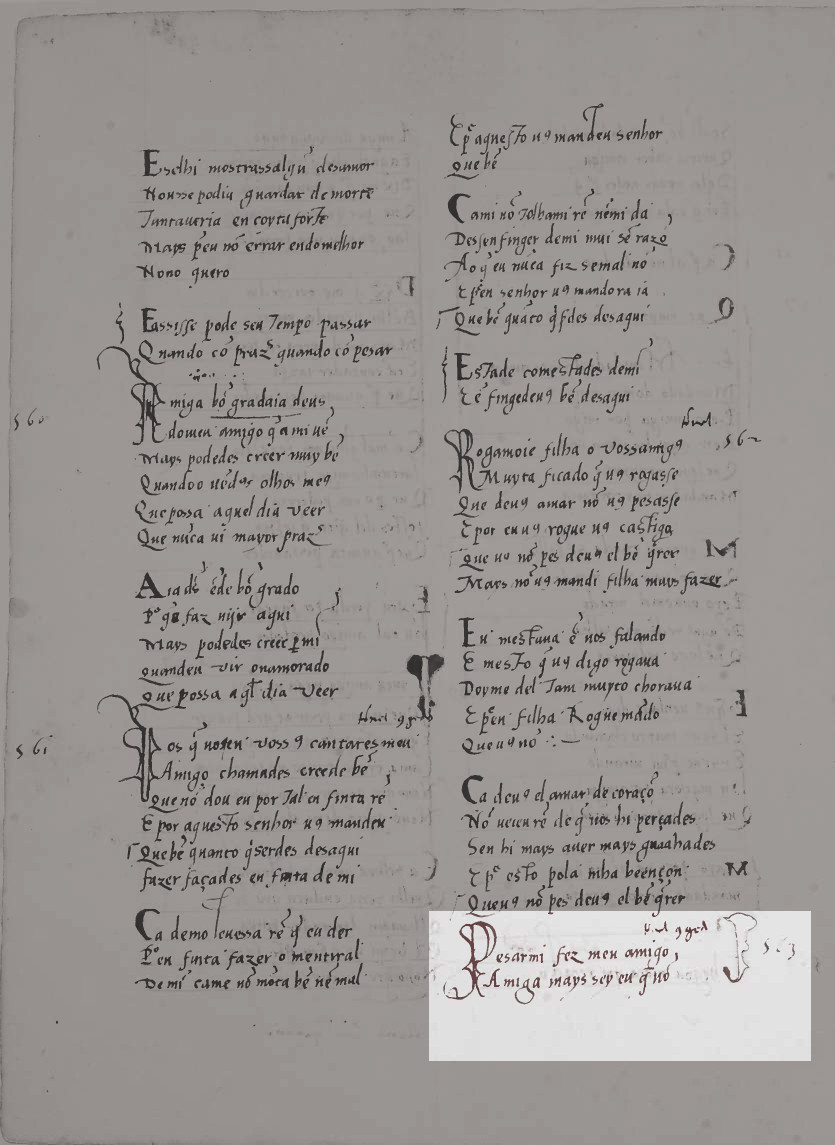 Eselhi mostrassalgũ desamor
Nonsse podia guardar de morte
Tantaueria en coyta forte
Mays p̃eu nõ errar endomelhor
Nono quero
Eassisse pode seu Tempo passar
Quando cõ praz̃ quando cõ pesar
560
Amiga bõ gradaia deus
domeu amigo q̃ a mi uẽ
Mays podedes creer muy bẽ
Quando o uedꝰ olhos meꝯ
Que possa aquel dia veer
Que nũca ui mayor praz̃
Aia ds̃ ẽde bõ grado
faz uijr aqui
Mays podedes creer ꝑ mi
quandeu vir onamorado
Que possa aql̃ dia veer
561
Pos q̃ uossꝯ cantares meu
Amigo chamades creede bẽ
Que nõ dou eu por Tal enfinta rẽ
E por aquesto senhor uꝯ mandeu
Que bẽ quanto q̃serdes desaqui
fazer façades enfinta de mi
Ca demo leuessa rẽ q̃ eu der
Põ en finta fazer o mentiral
De mĩ came nõ mõta bẽ nẽ mal
E pr̃ aquesto uꝯ mandeu senhor
Que bẽ
Cami nõ tolhami rẽ nẽmi da
Dessenfinger demi mui sẽ razõ
Ao q̃ eu nũca fiz semal nõ
E pr̃en senhor uꝯ mandora ia
Que bẽ quãto q̃sdes desaqui
Estade comestades demi
E ẽfingedeuꝯ bẽ desagui
562
Rogamoie filha o uossamigꝯ
Muyta ficado q̃ uꝯ rogasse
Que deuꝯ amar nõ uꝯ pesasse
E por eu uꝯ rogue uꝯ castigo
Que uꝯ nõ pes deuꝯ el bẽ q̃rer
Mays nõ uꝯ mandi filha mays fazer
Eu mestaua ẽ uos falando
E mesto q̃ uꝯ digo rogaua
Doyme del Tam muyto choraua
E pr̃en filha Rogue mãdo
Que uꝯ nõ
Ca deuꝯ el amar de coraçõ
Nõ ueieu rẽ de q̃ uos hi perçades
Sen hi mays auer mays guaahades
E pr̃ esto pola mha beençon
Queuꝯ nõ pes deuꝯ el bẽ q̃rer
563
Pesarmi fez meu amigo
Amiga mays sey eu q̃ nõ